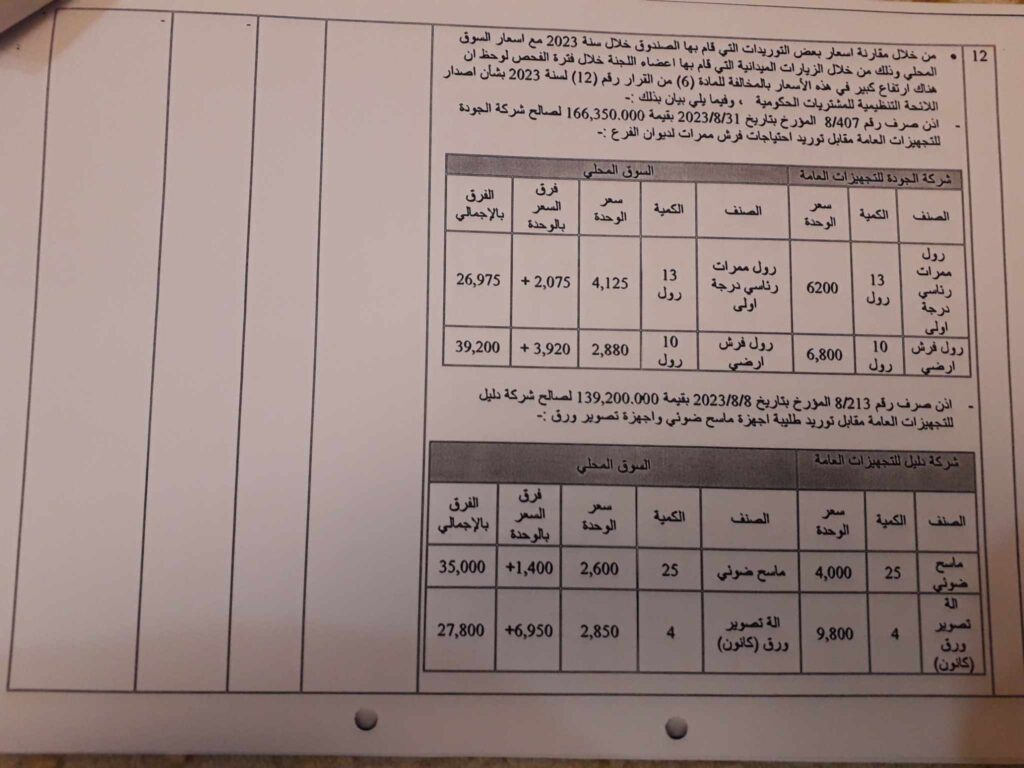 12
• من خلال مقارنة اسعار بعض التوريدات التي قام بها الصندوق خلال سنة 2023 مع اسعار السوق
المحلي وذلك من خلال الزيارات الميدانية التي قام بها اعضاء اللجنة خلال فترة الفحص لوحظ ان
هناك ارتفاع كبير في هذه الأسعار بالمخالفة للمادة (6) من القرار رقم (12) لسنة 2023 بشأن اصدار
اللائحة التنظيمية للمشتريات الحكومية ، وفيما يلي بيان بذلك :-
- اذن صرف رقم 8/407 المؤرخ بتاريخ 2023/8/31 بقيمة 166,350.000 لصالح شركة الجودة
للتجهيزات العامة مقابل توريد احتياجات فرش ممرات لديوان الفرع :-
شركة الجودة للتجهيزات العامة السوق المحلي
الصنف الكمية سعر الوحدة الصنف الكمية سعر الوحدة فرق السعر بالوحدة الفرق بالإجمالي
رول ممرات رئاسي درجة اولى 13 رول 6200 رول ممرات رئاسي درجة اولى 13 رول 4,125 2,075 + 26,975
رول فرش ارضي 10 رول 6,800 رول فرش ارضي 10 رول 2,880 3,920 + 39,200
- اذن صرف رقم 8/213 المؤرخ بتاريخ 2023/8/8 بقيمة 139,200.000 لصالح شركة دليل
للتجهيزات العامة مقابل توريد طلبية اجهزة ماسح ضوئي واجهزة تصوير ورق :-
شركة دليل للتجهيزات العامة السوق المحلي
الصنف الكمية سعر الوحدة الصنف الكمية سعر الوحدة فرق السعر بالوحدة الفرق بالإجمالي
ماسح ضوئي 25 4,000 ماسح ضوئي 25 2,600 1,400+ 35,000
الة تصوير ورق (كانون) 4 9,800 الة تصوير ورق (كانون) 4 2,850 6,950+ 27,800